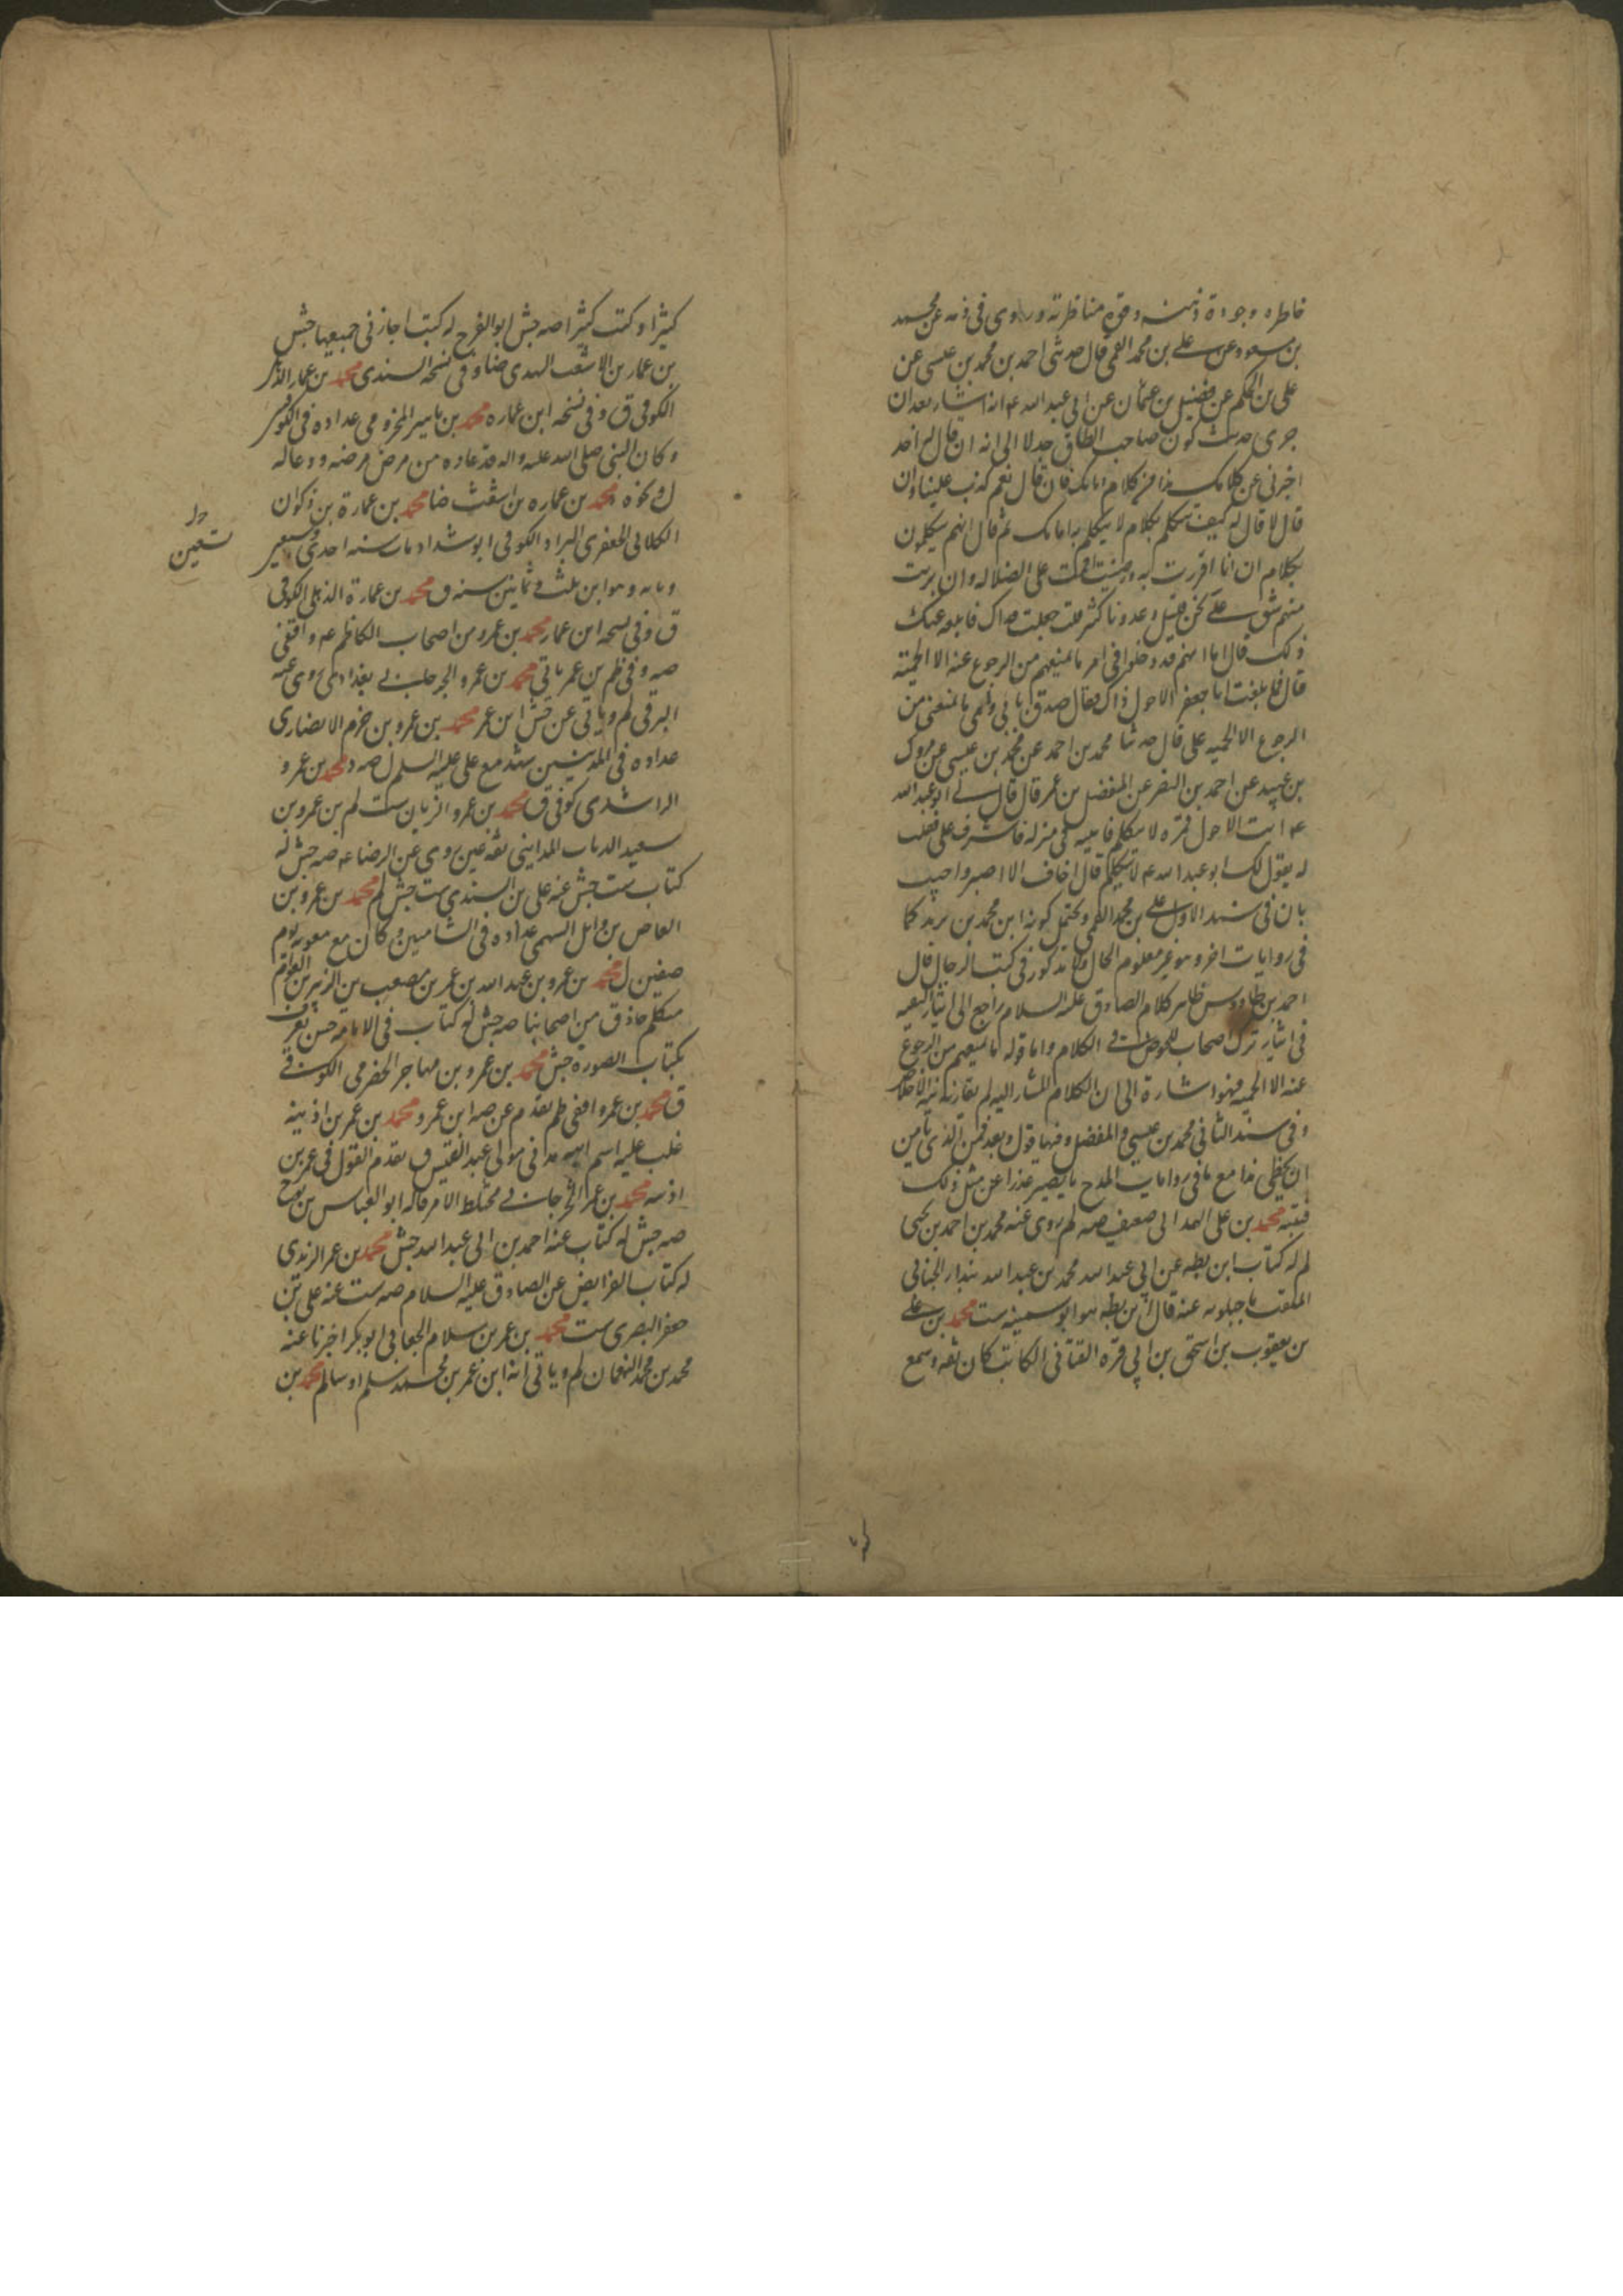 خاطره وجودة ذهنه وقوة مناظرته وروى فى ذمه عن محمد
بن مسعود عن على بن محمد القمى قال حدثنى احمد بن محمد بن عيسى عن
على بن الحكم عن فضيل بن عثمان عن ابى عبد الله ع انه اشار بعد ان
جرى حديث كون صاحب الطاق جدلا الى انه ان قال له احد
اخبرنى عن كلامك هذا من كلام امامك فان قال نعم كذب علينا وان
قال لا قال له كيف تتكلم بكلام لا يتكلم به امامك ثم قال انهم يتكلمون
بكلام ان انا اقررت به ورضيت اقمت على الضلالة وان برئت
منهم شق على نحن قليل وعدونا كثير قلت جعلت فداك فابلغه عنك
ذلك قال اما انهم قد دخلوا فى امر ما يمنعهم من الرجوع عنه الا الحمية
قال فابلغت ابا جعفر الاحول ذاك فقال صدق بابى وامى ما يمنعنى من
الرجوع الا الحمية على قال حدثنا محمد بن احمد عن محمد بن عيسى عن مروك
بن عبيد عن احمد بن النضر عن المفضل بن عمر قال قال لى ابو عبد الله
ع ايت الاحول فمره لا يتكلم فاتيته فى منزله فاشرف على فقلت
له يقول لك ابو عبد الله ع لا تتكلم قال اخاف الا اصبر واجيب
بان فى سند الاول على بن محمد القمى ويحتمل كونه ابن محمد بن يزيد كما
فى روايات اخر وهو غير معلوم الحال ولا مذكور فى كتب الرجال قال
احمد بن طاووس ظاهر كلام الصادق عليه السلام راجع الى ايثار التقية
فى ايثار ترك اصحاب الخوض فى الكلام واما قوله ما يمنعهم من الرجوع
عنه الا الحمية فهو اشارة الى ان الكلام المشار اليه لم يقارنه نية الاخلاص
وفى سند الثانى محمد بن عيسى والمفضل وفيهما قول وبعد فمن الذى يامن
ان يخطى هذا مع ما فى روايات المدح ما يصير عذرا عن مثل ذلك
فتنبه محمد بن على الهمدانى ضعيف صه لم روى عنه محمد بن احمد بن يحيى
لم له كتاب ابن بطه عن ابى عبد الله محمد بن عبد الله بندار الجنانى
الملقب ماجيلويه عنه قال ابن بطه هو ابو سمينه ست محمد بن على
بن يعقوب بن اسحق بن ابى قرة القنانى الكاتب كان ثقه وسمع
كثيرا وكتب كثيرا صه جش ابو الفرج له كتب اجازنى جميعها جش
بن عمار بن الاشعث الهمدى ضا وفى نسخه السندى محمد بن عمار
الكوفى ق وفى نسخه ابن عماره محمد بن ياسر المخزومى عداده فى الكوفيين
وكان النبى صلى الله عليه واله قد عاده من مرض مرضه ودعا له
ل ونحوه محمد بن عماره بن اشعث ضا محمد بن عمارة بن ذكوان
الكلابى الجعفرى البراد الكوفى ابو شداد مات سنه احدى وسبعين
ومايه وهو ابن ثلث وثمانين سنه ق محمد بن عمارة الذهلى الكوفى
ق وفى نسخه ابن عمار محمد بن عمرو من اصحاب الكاظم ع واقفى
صه وفى ظم بن عمر ياتى محمد بن عمرو الجرجانى بغدادى روى عنه
البرقى لم وياتى عن جش ابن عمر محمد بن عمرو بن حزم الانصارى
عداده فى المدنيين شهد مع على عليه السلم ل صه د محمد بن عمرو
الراشدى كوفى ق محمد بن عمرو الزيات ست لم بن عمرو بن
سعيد الزيات المداينى ثقه عين روى عن الرضا ع صه جش له
كتاب ست جش عنه على بن السندى ست جش لم محمد بن عمرو بن
العاص بن وايل السهمى عداده فى الشاميين وكان مع معويه يوم
صفين ل محمد بن عمرو بن عبد الله بن عمر بن مصعب بن الزبير بن العوام
متكلم حاذق من اصحابنا صه جش له كتاب فى الامامه حسن يعرف
بكتاب الصورة جش محمد بن عمرو بن مهاجر الحضرمى الكوفى
ق محمد بن عمرو واقفى ظم تقدم عن صه ابن عمرو محمد بن عمر بن اذينه
غلب عليه اسم ابيه مدنى مولى عبد القيس ق تقدم القول فى عمر بن
اذينه محمد بن عمر الجرجانى مختلط الامر قاله ابو العباس بن نوح
صه جش له كتاب عنه احمد بن ابى عبد الله جش محمد بن عمر الزيدى
له كتاب الفرايض عن الصادق عليه السلام صه ست عنه على بن
جعفر البصرى ست محمد بن عمر بن سلام الجعابى ابو بكر اخبرنا عنه
محمد بن محمد النعمان لم وياتى انه ابن عمر بن محمد سلم او سالم محمد بن
تسعين